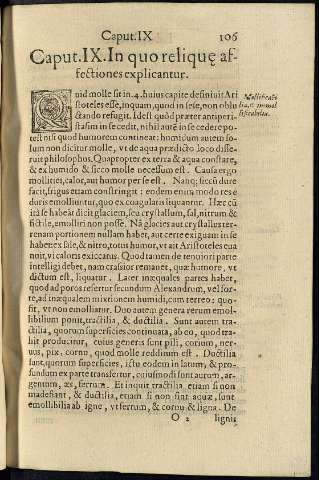 Caput.IX
106
Caput.IX. In quo reliquę af-
fectiones explicantur.
Quid molle sit in.4.huius capite definiuit Ari
stoteles esse, inquam, quod in sese, non oblu
ctando refugit. Idest quòd præter antiperi-
stasim in se cedit, nihil autē in se cedere po-
test nisi quod humorem contineat: humidum autem so-
lum non dicitur molle, vt de aqua prædicto loco disse-
ruit philosophus. Quapropter ex terra & aqua constare,
& ex humido & sicco molle necessum est. Causa ergo
mollitiei, calor, aut humor per se est. Nanq; siccū dure
facit, frigus etiam constringit: eodem enim modo res e
duris emolliuntur, quo ex coagularis liquantur. Hæc cū
ita se habeāt dicit glaciem, seu crystallum, sal, nitrum &
fictile, emolliri non posse. Nā glocies aut crystallus ter-
renam portionem nullam habet, aut certe exiguam in se
habet: ex sale, & nitro, totus humor, vt ait Aristoteles eua
nuit, vi caloris exiccatus. Quod tamen de tenuiori parte
intelligi debet, nam crassior remanet, quæ humore, vt
dictum est, liquatur. Later inæquales partes habet,
quod ad poros refertur secundum Alexandrum, vel for-
te, ad inæqualem mixtionem humidi, cum terreo: quo-
fit, vt non emolliatur. Duo autem genera rerum emol-
libilium ponit, tractilia, & ductilia. Sunt autem tra-
ctilia, quorum superficies continuata, ab eo, quod tra-
hit producitur, cuius generis sunt pili, corium, ner-
uus, pix, cornu, quod molle redditum est. Ductilia
sunt, quorum superficies, ictu eodem in latum, & pro-
fundum ex parte transfertur, cuiusmodi sunt aurum, ar-
gentum, æs, ferrum. Et inquit tractilia etiam si non
madefiant, & ductilia, etiam si non sint aquæ, sunt
emollibilia ab igne, vt ferrum, & cornu & ligna. De
O 2
lignis